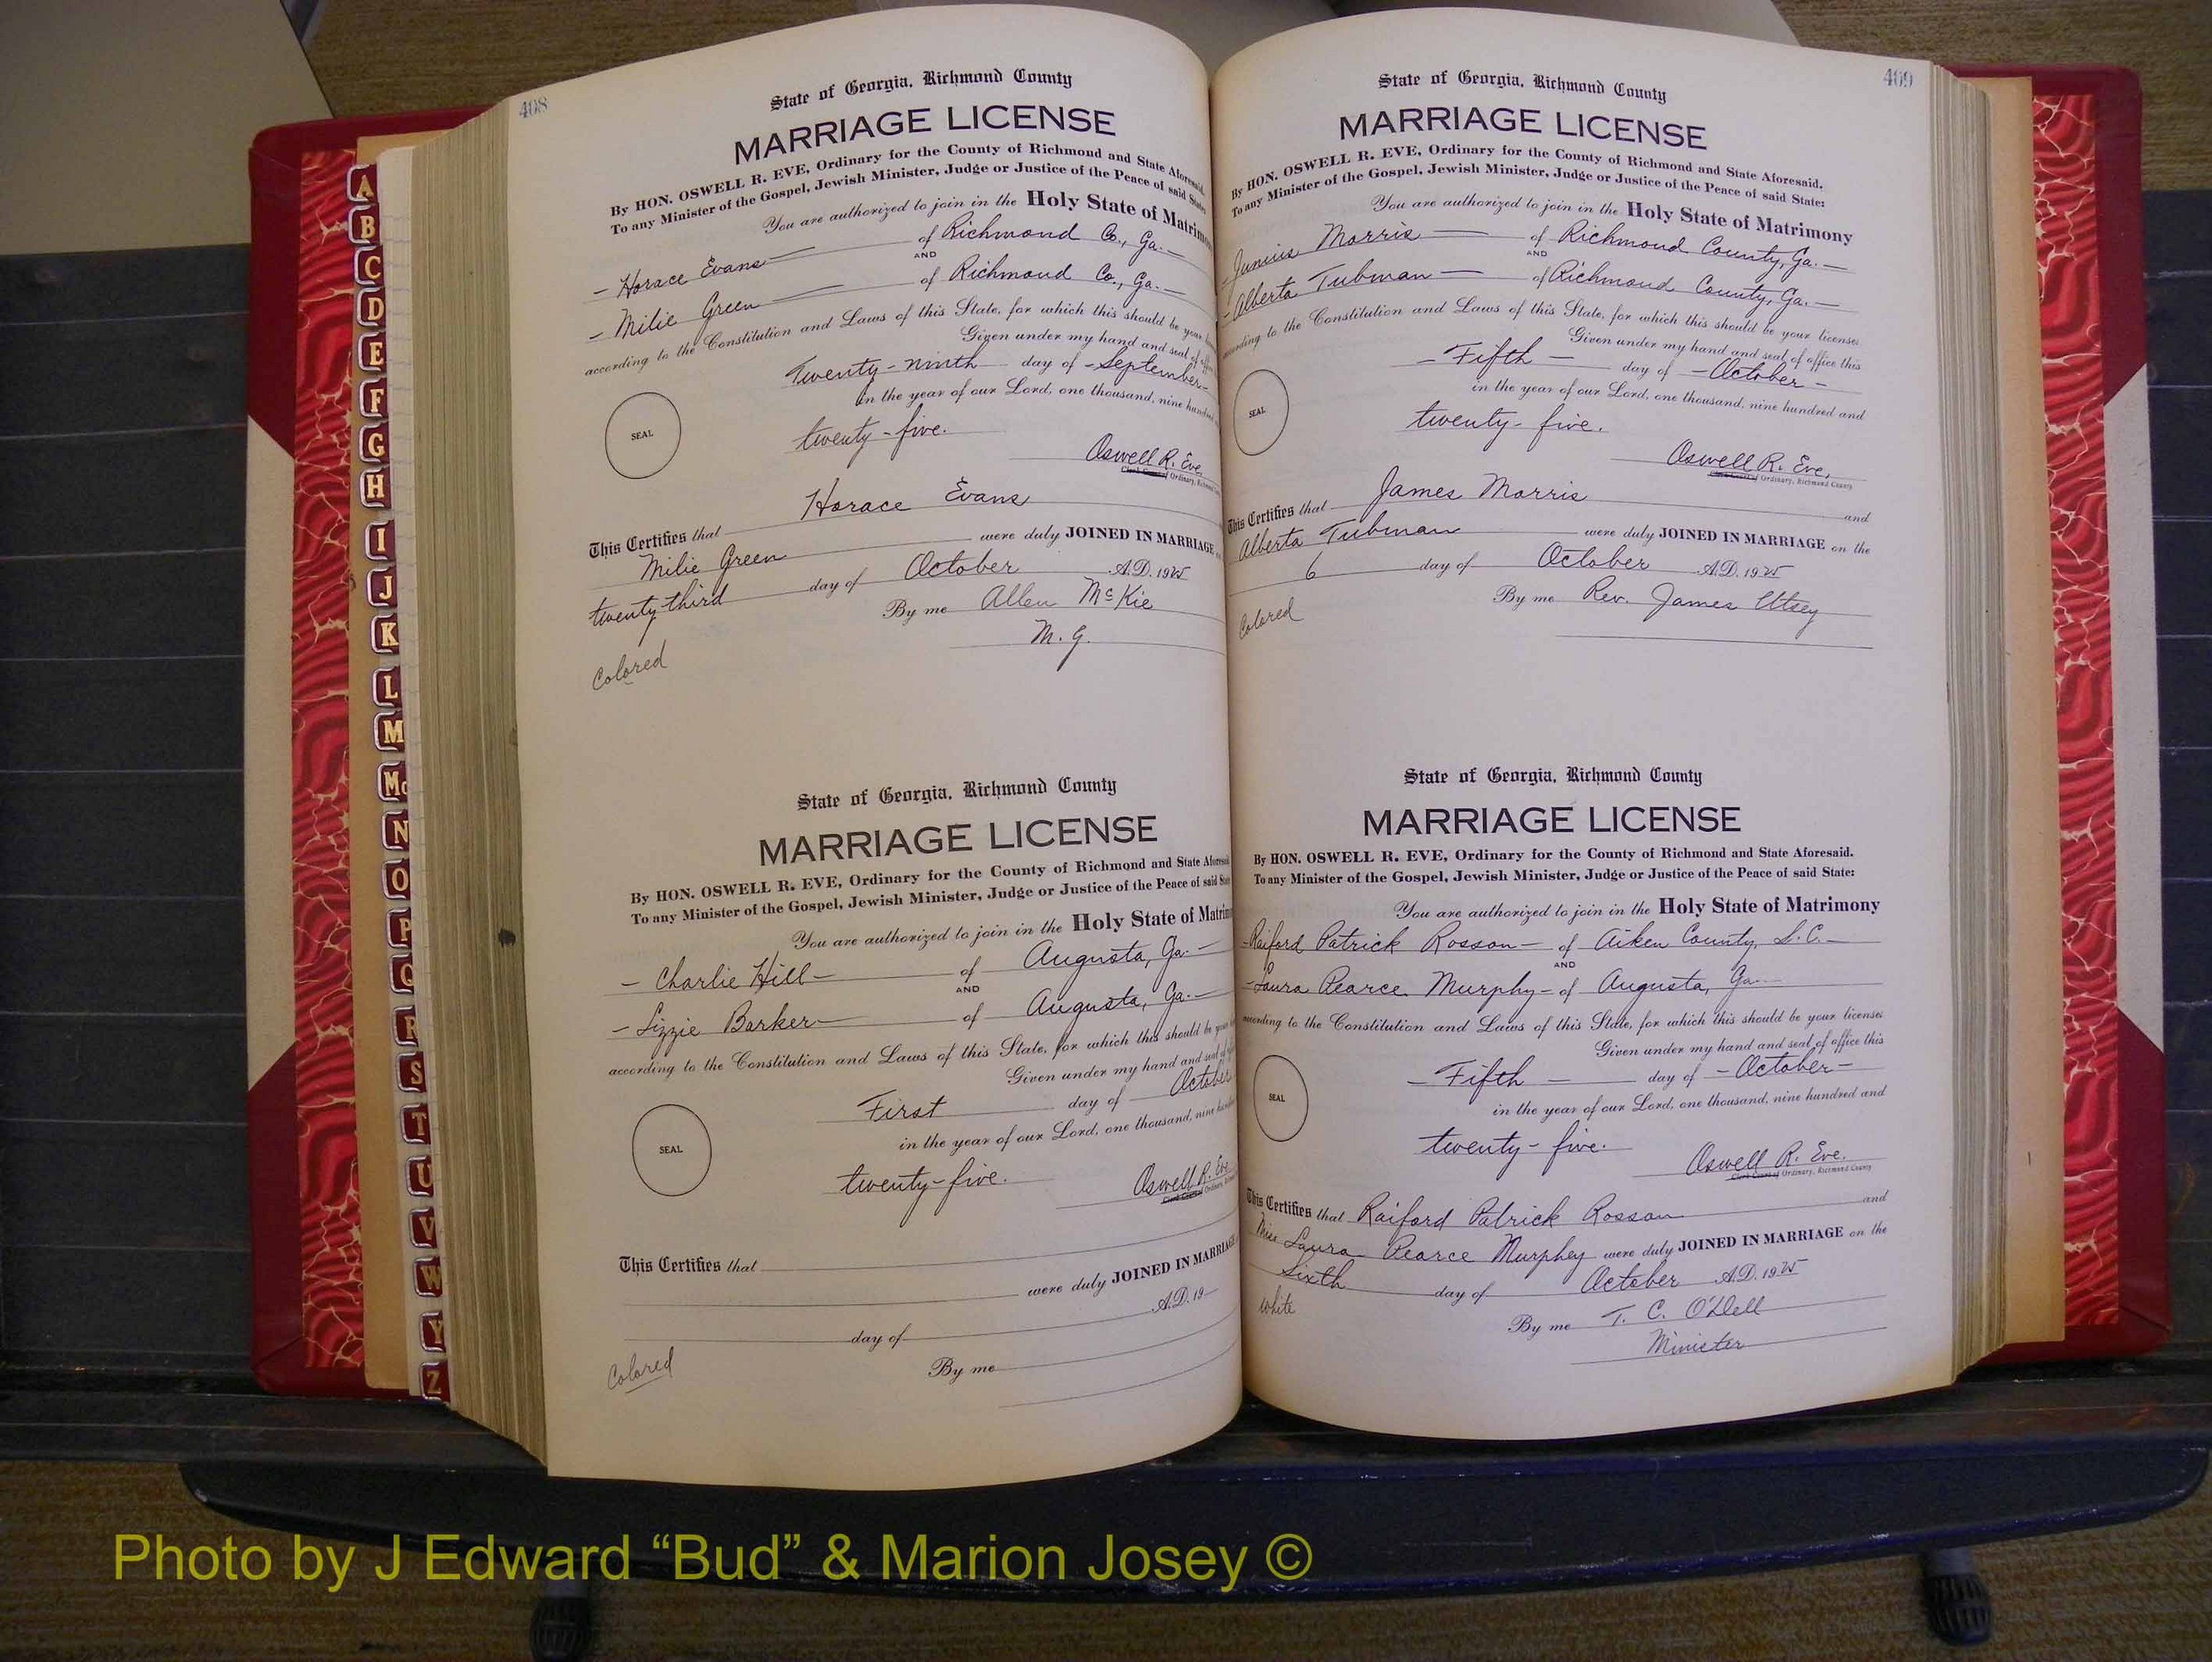 408
State of Georgia, Richmond County
MARRIAGE LICENSE
By HON. OSWELL R. EVE, Ordinary for the County of Richmond and State Aforesaid.
To any Minister of the Gospel, Jewish Minister, Judge or Justice of the Peace of said State
You are authorized to join in the Holy State of Matrimony
- Horace Evans — of Richmond Co., Ga. —
AND
- Milie Green — of Richmond Co., Ga. —
according to the Constitution and Laws of this State, for which this should be your
Given under my hand and seal of
Twenty-ninth day of - September -
in the year of our Lord, one thousand, nine hundred
SEAL
twenty-five.
Oswell R. Eve,
Ordinary, Richmond
This Certifies that Horace Evans
Milie Green were duly JOINED IN MARRIAGE
twenty third day of October A.D. 1925
By me Allen McKie
M. G.
Colored
State of Georgia, Richmond County
MARRIAGE LICENSE
By HON. OSWELL R. EVE, Ordinary for the County of Richmond and State Aforesaid
To any Minister of the Gospel, Jewish Minister, Judge or Justice of the Peace of said State
You are authorized to join in the Holy State of Matrim
- Charlie Hill - of Augusta, Ga. —
AND
- Lizzie Barker - of Augusta, Ga. —
according to the Constitution and Laws of this State, for which this should be your
Given under my hand and seal of
First day of October
in the year of our Lord, one thousand, nine hundred
SEAL
twenty-five.
Oswell R. Eve
This Certifies that
were duly JOINED IN MARRIAGE
day of A.D. 19
By me
Colored
409
State of Georgia, Richmond County
MARRIAGE LICENSE
By HON. OSWELL R. EVE, Ordinary for the County of Richmond and State Aforesaid.
To any Minister of the Gospel, Jewish Minister, Judge or Justice of the Peace of said State:
You are authorized to join in the Holy State of Matrimony
Junius Morris — of Richmond County, Ga. —
AND
- Alberta Tubman — of Richmond County, Ga. —
according to the Constitution and Laws of this State, for which this should be your licenses
Given under my hand and seal of office this
- Fifth — day of - October -
in the year of our Lord, one thousand, nine hundred and
SEAL
twenty-five.
Oswell R. Eve,
Clerk Court of Ordinary, Richmond County
This Certifies that James Morris and
Alberta Tubman were duly JOINED IN MARRIAGE on the
6 day of October A.D. 1925
By me Rev. James Utsey
Colored
State of Georgia, Richmond County
MARRIAGE LICENSE
By HON. OSWELL R. EVE, Ordinary for the County of Richmond and State Aforesaid.
To any Minister of the Gospel, Jewish Minister, Judge or Justice of the Peace of said State:
You are authorized to join in the Holy State of Matrimony
- Raiford Patrick Rosson - of Aiken County, S.C. —
AND
- Laura Pearce Murphy - of Augusta, Ga.
according to the Constitution and Laws of this State, for which this should be your licenses
Given under my hand and seal of office this
- Fifth — day of - October -
in the year of our Lord, one thousand, nine hundred and
SEAL
twenty-five.
Oswell R. Eve.
Clerk Court of Ordinary, Richmond County
This Certifies that Raiford Patrick Rosson and
Miss Laura Pearce Murphey were duly JOINED IN MARRIAGE on the
Sixth day of October A.D. 1925
By me T. C. O'Dell
Minister
White
A
B
C
D
E
F
G
H
I
J
K
L
M
Mc
N
O
P
Q
R
S
T
U
V
W
Y
Z
Photo by J Edward “Bud” & Marion Josey ©